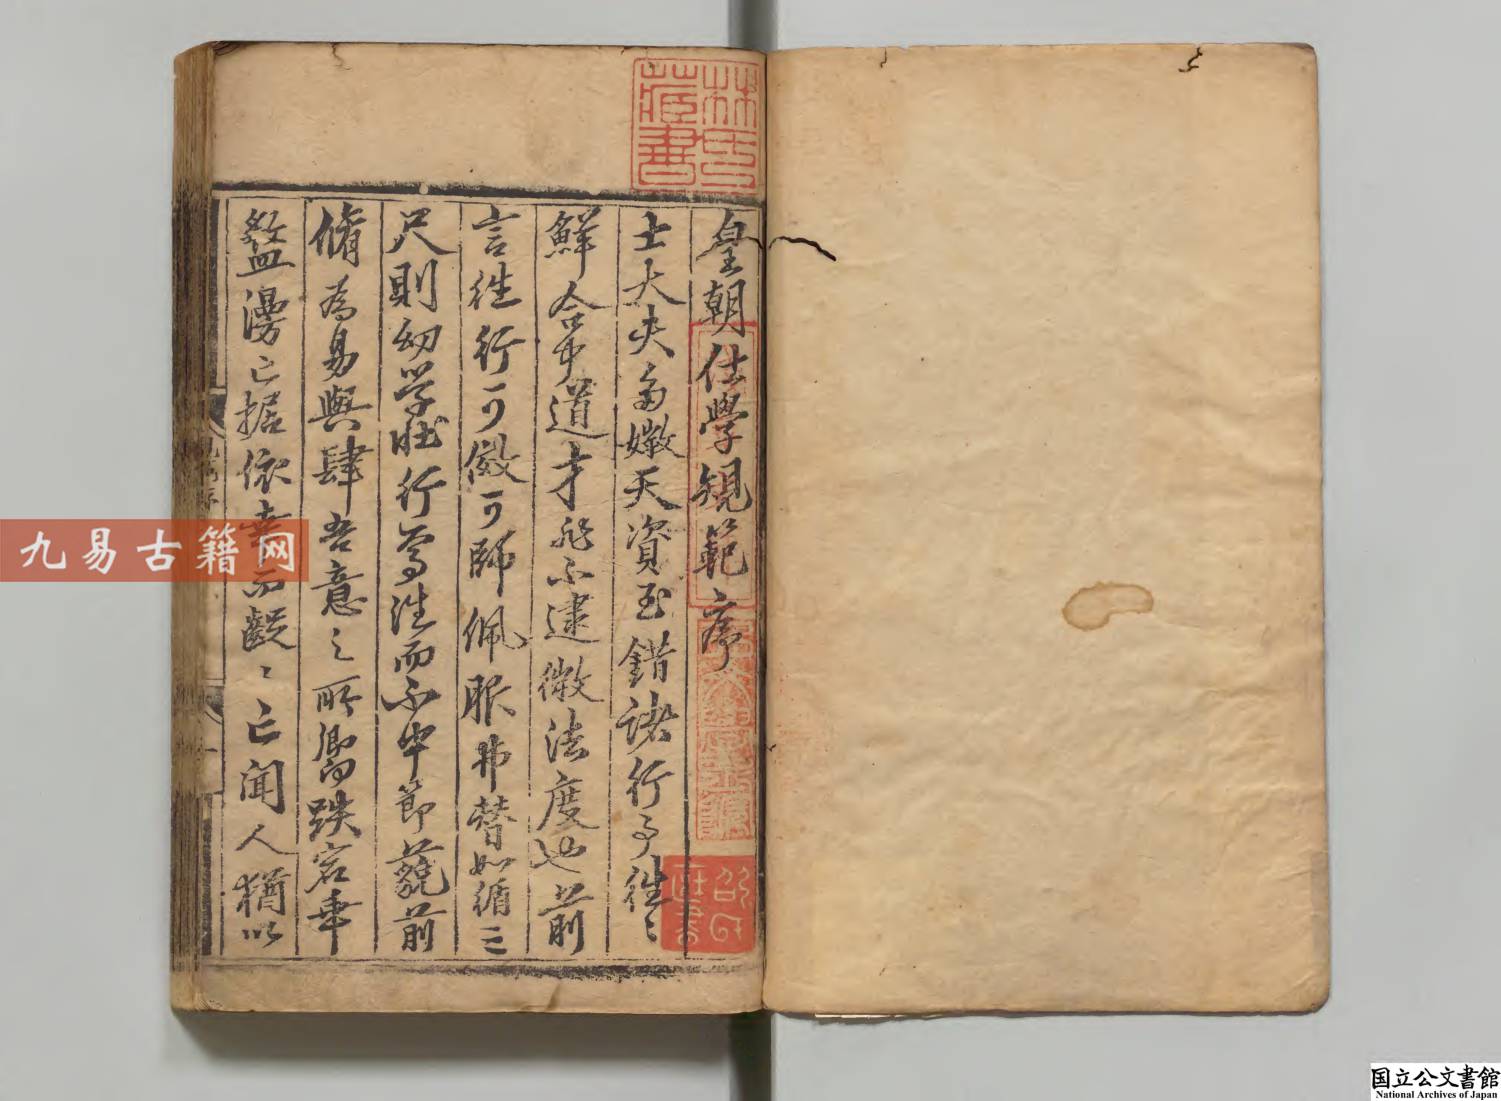 皇朝仕學規範序
士大夫多媺天資至錯諸行事往〻
鮮合乎道才非不逮微法度也前
言往行可儆可師佩服弗替如循三
尺則幼学壮行蔫往而不中節藐前
脩為易與肆吾意之所嚮跌宕車
盭漫亡据依幸而齯〻亡聞人猶以
林氏藏書
九易古籍网
国立公文書館
National Archives of Japan